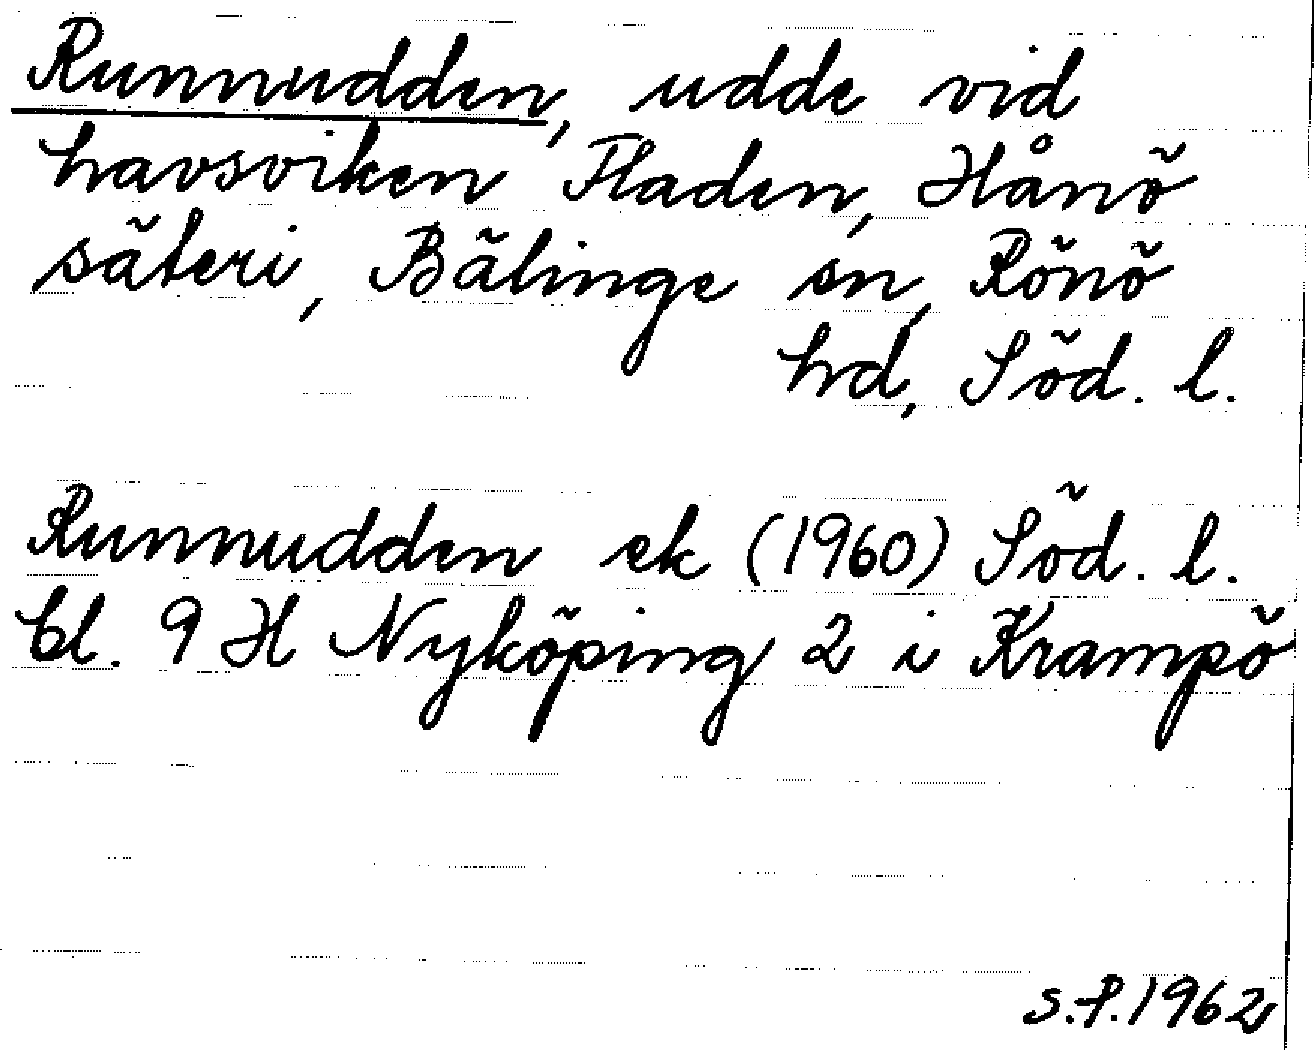 Runnudden, udde vid
havsviken Fladen, Hånö
säteri, Bälinge sn, Rönö
hd, Söd. l.
Runnudden ek (1960) Söd. l.
bl. 9 H Nyköping 2 i Krampö
S.P. 1962